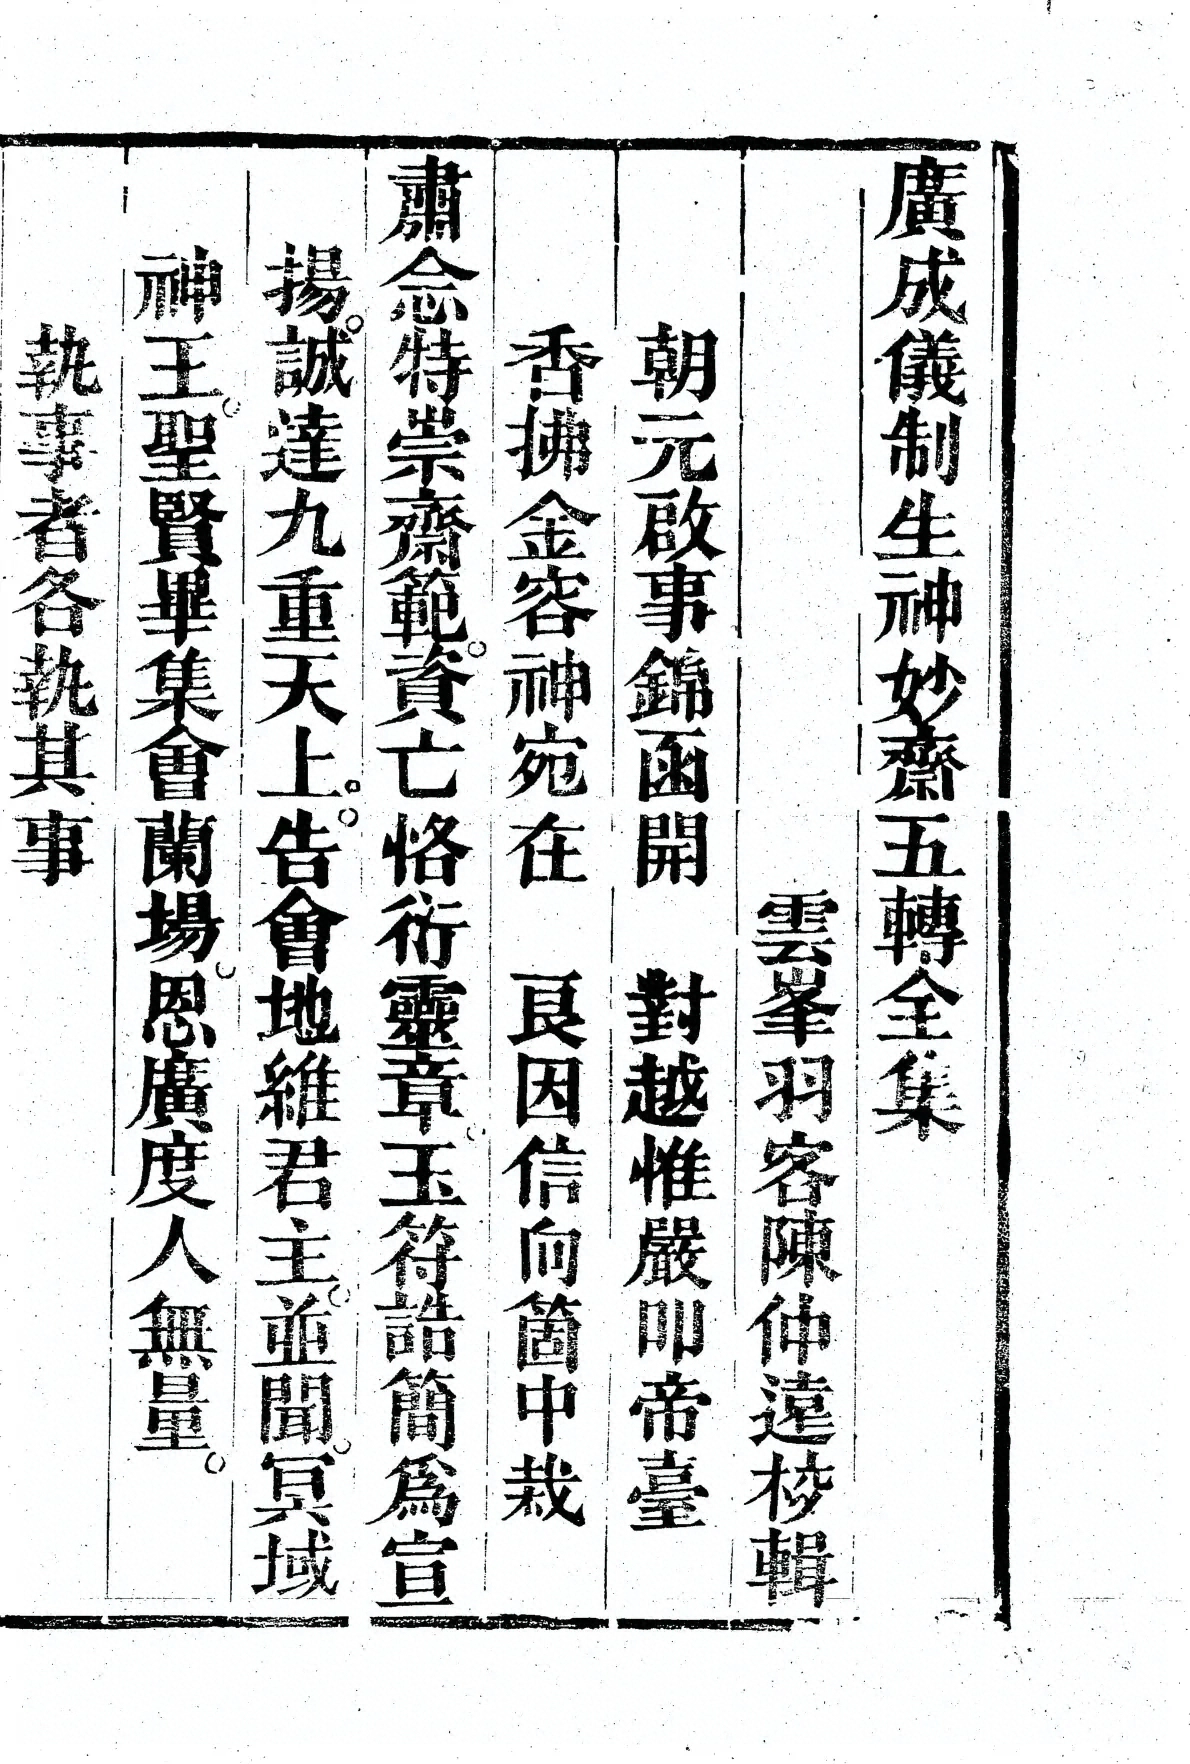 廣成儀制生神妙齋五轉全集
雲峯羽客陳仲遠校輯
朝元啟事錦函開　對越惟嚴叩帝臺
香拂金容神宛在　良因信向箇中栽
肅念特崇齋範。資亡恪衍靈章。玉符誥簡爲宣
揚。誠達九重天上。告會地維君主。並聞。冥域
神王。聖賢畢集會蘭場。恩廣度人無量。
執事者各執其事